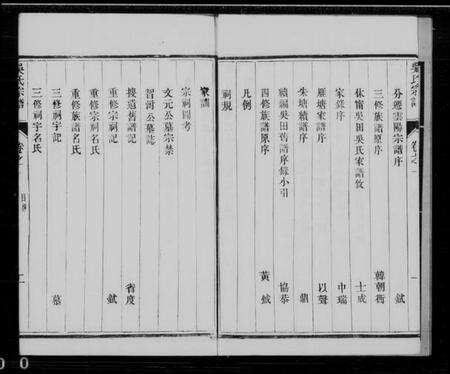 吳氏宗譜 卷之一
分遷雲陽宗譜序 鉽
三修族譜原序 韓朝衡
休甯吳田吳氏家譜攷 士成
家錄序 中瑞
雁塘家譜序 以聲
朱塘續譜序 鼎
續編吳田舊譜序錄小引 協恭
四修族譜原序 黃鉞
凡例
祠規
家譜
宗祠圖考
文元公墓宗禁
習河公墓誌
接遠舊譜記 省度
重修宗祠記 鉽
重修宗祠名氏
重修族譜名氏
三修祠宇記 墓
三修祠宇名氏
吳氏宗譜 卷之一 目錄